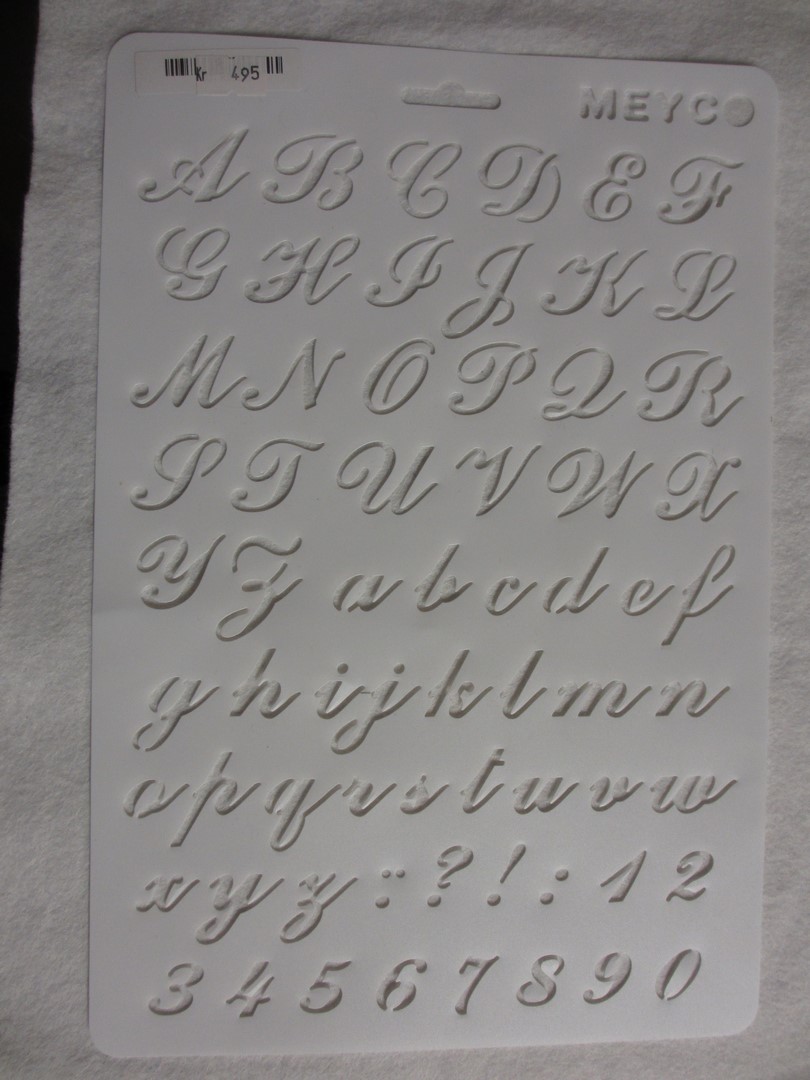 Kr 495
MEYCO
A B C D E F
G H I J K L
M N O P Q R
S T U V W X
Y Z a b c d e f
g h i j k l m n
o p q r s t u v w
x y z ¨ ? ! : 1 2
3 4 5 6 7 8 9 0